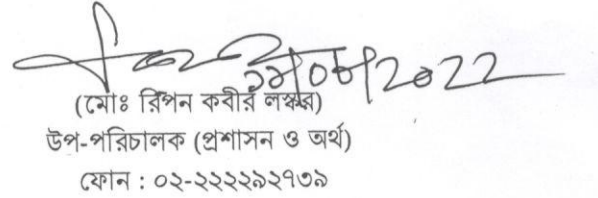 (মোঃ রিপন কবীর লস্কর)
উপ-পরিচালক (প্রশাসন ও অর্থ)
ফোন : ০২-২২২২৯২৭৩৯